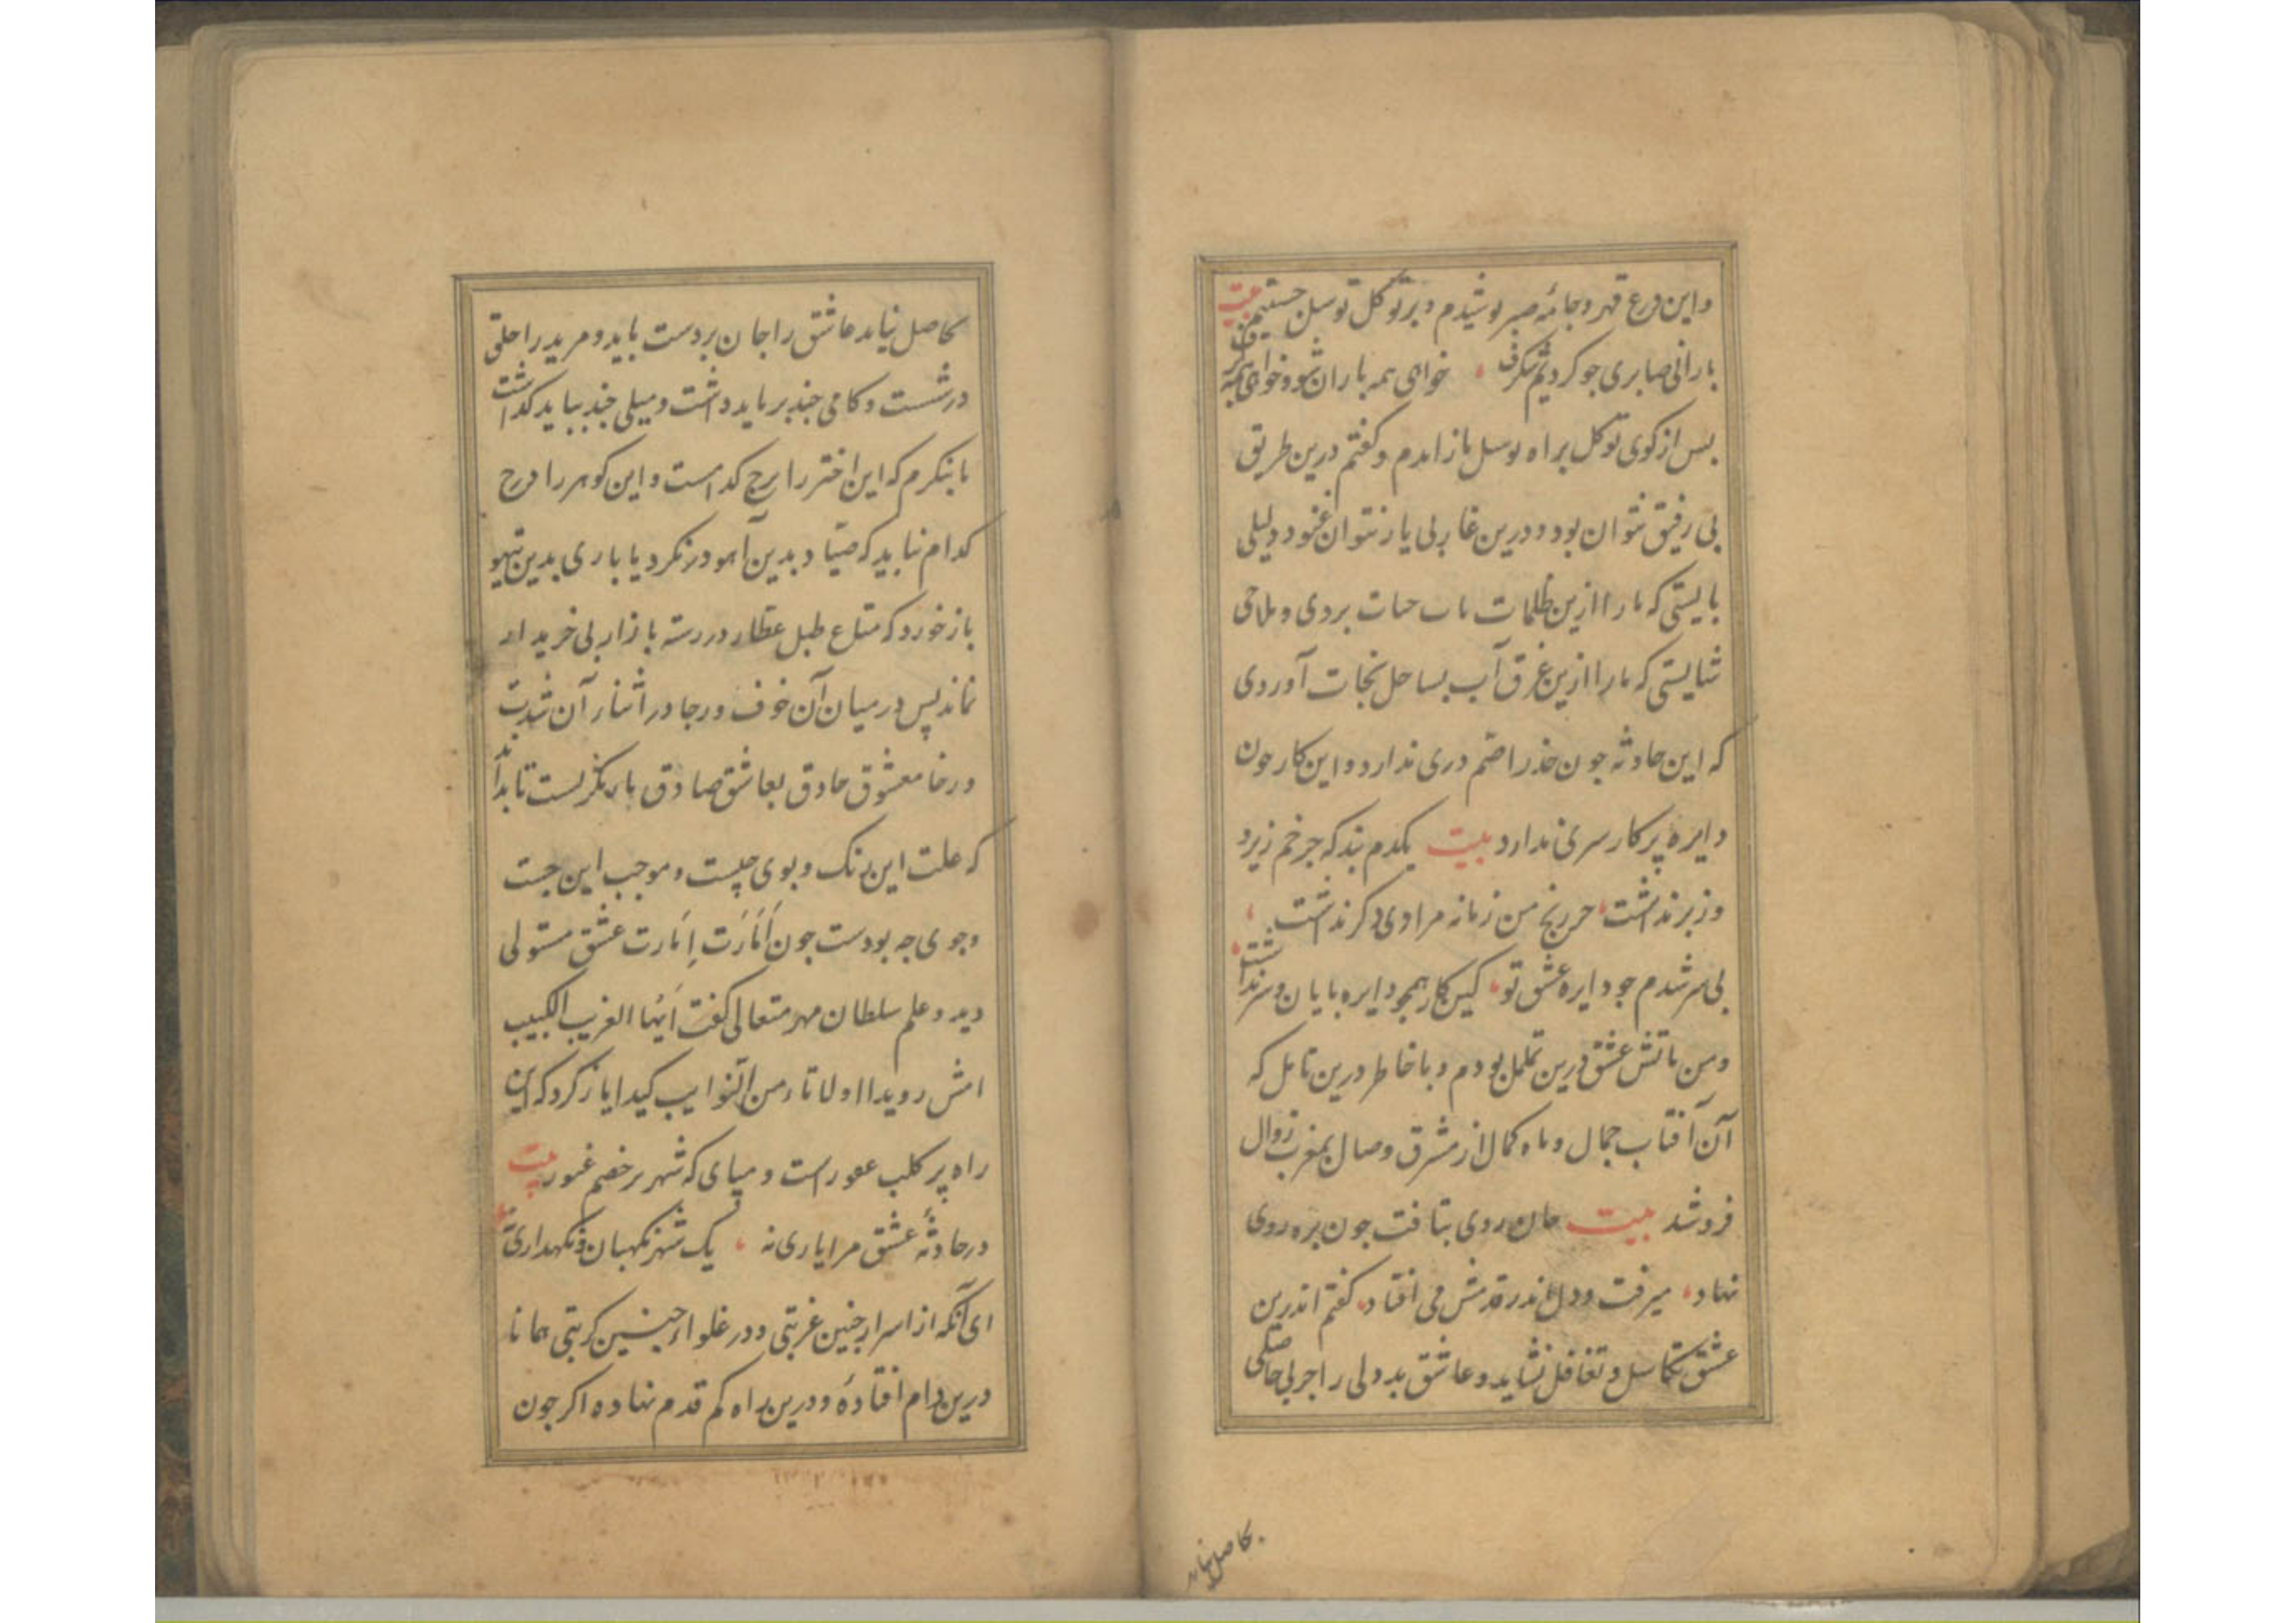 واین درع قهر وجامهٔ صبر پوشیدم و بر توکل توسل جستیم بیت
بارانی صابری جو کردیم شکرف ، خواهی همه باران شو و خواهی همه
بس از کوی توکل براه توسل باز امدم و کفتم درین طریق
بی رفیق نتوان بود و درین غار بی یار نتوان غنود دلیلی
بایستی که مارا ازین ظلمات باب حیات بردی و ملاحی
شایستی که مارا ازین غرقاب بساحل نجات آوردی
که این حادثه جون جذر اصم دری ندارد و این کار جون
دایره پرکار سری ندارد بیت یکدم بند که جرخم زیر و
وزبر نداشت ، جز رنج من زمانه مرادی دکر نداشت ،
بی سر شدم جو دایره عشق تو ، کین کار همجو دایره پایان و سر نداشت
ومن باتش عشق درین تململ بودم و با خاطر درین تامل که
آن آفتاب جمال و ماه کمال از مشرق وصال بمغرب زوال
فرو شد بیت جان روی بتافت جون بره روی
نهاد ، میرفت و دل اندر قدمش می افتاد ، کفتم اندرین
عشق تکاسل و تغافل نشاید و عاشق بددلی را جز بی حاصلی
بحاصل نیاید
بحاصل نیاید عاشق را جان بر دست باید و مرید را حلق
در شست و کامی جند بر باید داشت و میلی جند بباید کذاشت
تا بنکرم که این اختر را برج کدامست و این کوهر را درج
کدام نباید که صیاد بدین آهو در نکرد یا باری بدین تیهو
باز خورد که متاع طبل عطار در رسته بازار بی خریدار
نماند پس در میان آن خوف و رجا و در اثنار آن شدت
ورخا معشوق حاذق بعاشق صادق باز نکریست تا بداند
که علت این رنک و بوی چیست و موجب این جست
وجوی جه بودست جون اَمَارَت اِمَارت عشق مستولی
دید و علم سلطان مهر متعالی کفت اَیّها الغریب الکئیب
امش رویدا اولا تامن النوایب کیدا باز کرد که این
راه پر کلب عقور است و میای که شهر پر خصم غیور بیت
در حادثهٔ عشق مرا یاری نه ، یک شهر نکهبان و نکهداری نه
ای آنکه از اسرار جنین غربتی و در غلواء جنین کربتی همانا
درین دام افتادهٔ و درین راه کم قدم نهاده اکر جون